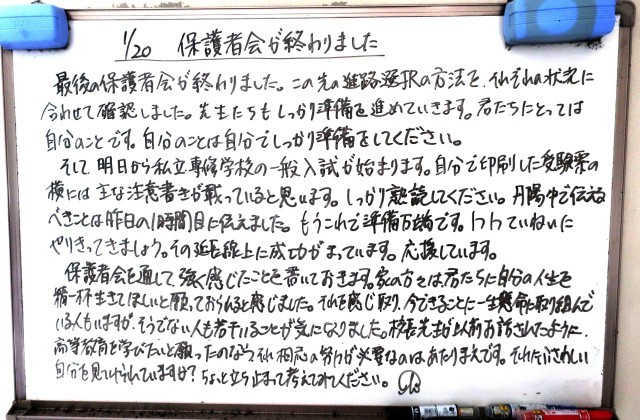 1/20 保護者会が終わりました
最後の保護者会が終わりました。この先の進路選択の方法を、それぞれの状況に
合わせて確認しました。先生たちもしっかり準備を進めていきます。君たちにとっては
自分のことです。自分のことは自分でしっかり準備をしてください。
そして、明日から私立専修学校の一般入試が始まります。自分で印刷した受験票の
横には主な注意書きが載っていると思います。しっかり熟読してください。丹陽中で伝える
べきことは昨日の1時間目に伝えました。もうこれで準備万端です。1つ1つていねいに
やりきってきましょう。その延長線上に成功がまっています。応援しています。
保護者会を通して、強く感じたことを書いておきます。家の方々は君たちに自分の人生を
精一杯生きてほしいと願っておられると感じました。それを感じ取り、今できることに一生懸命に取り組んで
いる人もいますが、そうでない人も若干いることが気になりました。校長先生が以前お話されたように、
高等教育を学びたいと願ったのなら、それ相応の努力が必要なのはあたりまえです。それにふさわしい
自分を見つけられていますか？ちょっと立ち止まって考えてみてください。